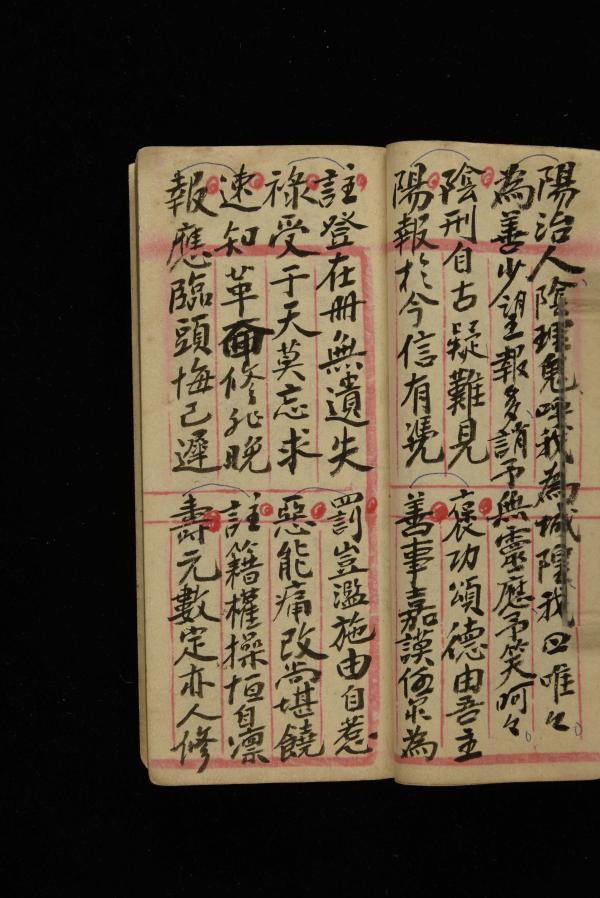 陽治人陰理鬼呼我為城隍我曰唯々
為善少望報多誚予無靈應予笑呵々
陰刑自古疑難見 褒功頌德由吾主
陽報於今信有凴 善事嘉謨任尔為
註登在冊無遺失 罰豈濫施由自惹
祿受于天莫忘求 惡能痛改尚堪饒
速知革面修非晚 註籍權操恒自凛
報應臨頭悔已遲 壽元數定亦人修